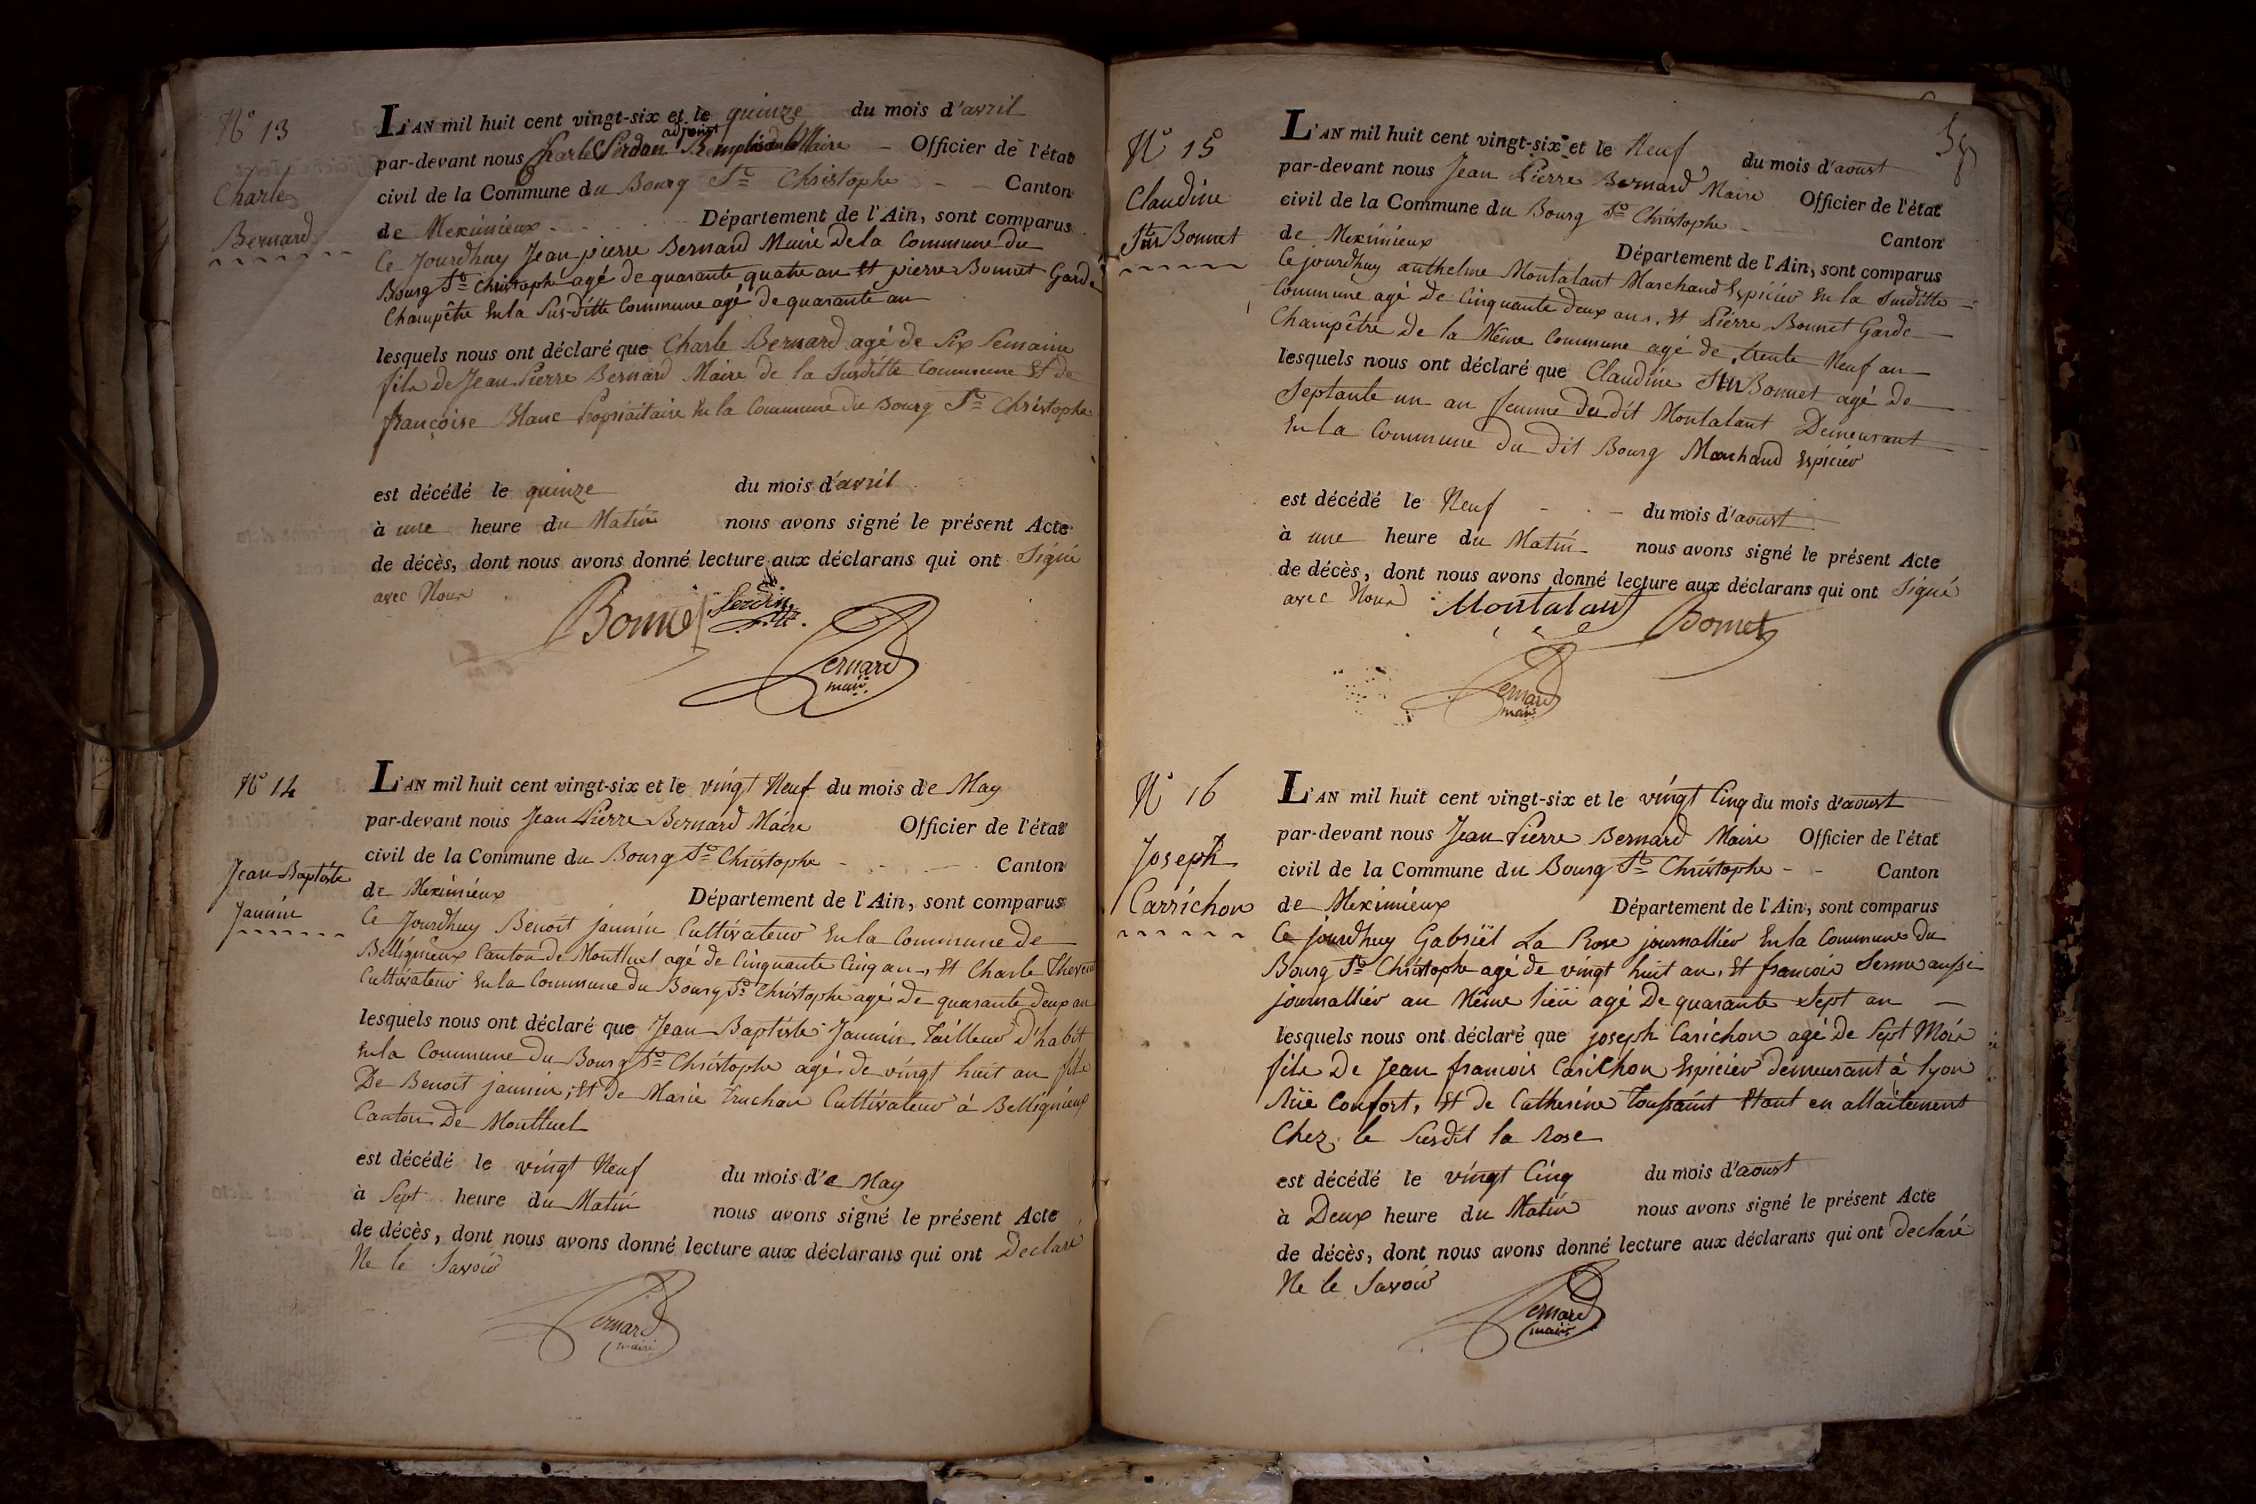 N° 13
Charle
Bernard
L'AN mil huit cent vingt-six et le quinze du mois d'avril
par-devant nous Charle adjoint Maire Officier de l'état
civil de la Commune du Bourg St Christophe Canton
de Meximieux Département de l'Ain, sont comparus
Ce Jourdhuy Jean pierre Bernard Maire De la Commune du
Bourg St Christophe agé de quarante quatre an Et pierre Bonnet Garde
Champêtre En la Sus-ditte Commune agé de quarante an
lesquels nous ont déclaré que Charle Bernard agé de Six Semaine
fils de Jean Pierre Bernard Maire de la Susditte Commune Et de
françoise Blanc Propriaitaire En la Commune du Bourg St Christophe
est décédé le quinze du mois d'avril
à une heure du Matin nous avons signé le présent Acte
de décès, dont nous avons donné lecture aux déclarans qui ont Signé
avec Nous
Bonnet
Bernard
maire
N° 14
Jean Baptiste
Jannin
L'AN mil huit cent vingt-six et le vingt Neuf du mois de May
par-devant nous Jean Pierre Bernard Maire Officier de l'état
civil de la Commune du Bourg St Christophe Canton
de Meximieux Département de l'Ain, sont comparus
Ce Jourdhuy Benoit jannin Cultivateur En la Commune de
Belligneux Canton de Montluel agé de Cinquante Cinq an, Et Charle Thevenin
Cultivateur En la Commune du Bourg St Christophe agé De quarante deux an
lesquels nous ont déclaré que Jean Baptiste Jannin Tailleur d'habit
En la Commune du Bourg St Christophe agé de vingt huit an fils
De Benoit jannin, Et De Marie Truchon Cultivateur à Belligneux
Canton De Montluel
est décédé le vingt Neuf du mois d'e May
à Sept heure du Matin nous avons signé le présent Acte
de décès, dont nous avons donné lecture aux déclarans qui ont Declaré
Ne le Savoir
Bernard
maire
N° 15
Claudine
St Bonnet
L'AN mil huit cent vingt-six et le Neuf du mois d'aoust
par-devant nous Jean Pierre Bernard Maire Officier de l'état
civil de la Commune du Bourg St Christophe
de Meximieux Canton
Département de l'Ain, sont comparus
Ce jourdhuy anthelme Montalant Marchand Epicier En la Susditte
Commune agé De Cinquante deux ans, Et Pierre Bonnet Garde
Champêtre De la Même Commune agé de trente Neuf an
lesquels nous ont déclaré que Claudine St Bonnet agé De
Septante un an femme du dit Montalant Demeurant
En la Commune Du Dit Bourg Marchand Espicier
est décédé le Neuf du mois d'aoust
à une heure du Matin nous avons signé le présent Acte
de décès, dont nous avons donné lecture aux déclarans qui ont Signé
avec Nous
Montalant
Bonnet
Bernard
maire
N° 16
Joseph
Carrichon
L'AN mil huit cent vingt-six et le vingt Cinq du mois d'aoust
par-devant nous Jean Pierre Bernard Maire Officier de l'état
civil de la Commune du Bourg St Christophe Canton
de Meximieux Département de l'Ain, sont comparus
Ce jourdhuy Gabriël La Rose journallier En la Commune du
Bourg St Christophe agé de vingt huit an, Et francois Senne aussi
journallier au Même lieu agé De quarante Sept an
lesquels nous ont déclaré que joseph Carichon agé De Sept Mois
fils De Jean francois Carichon Espicier demeurant à Lyon
Rüe Confort, Et de Catherine Toussaint Etant en allaitement
Chez le Susdit la Rose
est décédé le vingt Cinq du mois d'aoust
à Deux heure du Matin nous avons signé le présent Acte
de décès, dont nous avons donné lecture aux déclarans qui ont declaré
Ne le Savoir
Bernard
maire